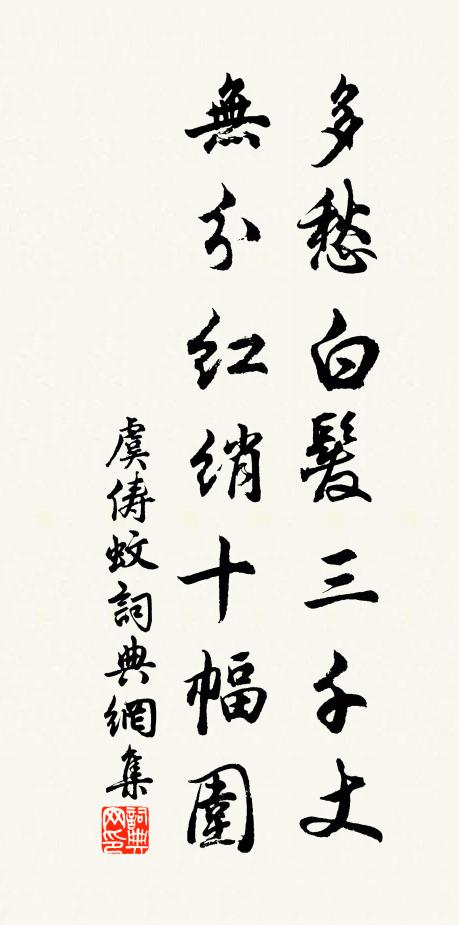 多愁白髮三千丈
無分紅綃十幅圍
虞儔蚊詞典網集
詞典網印